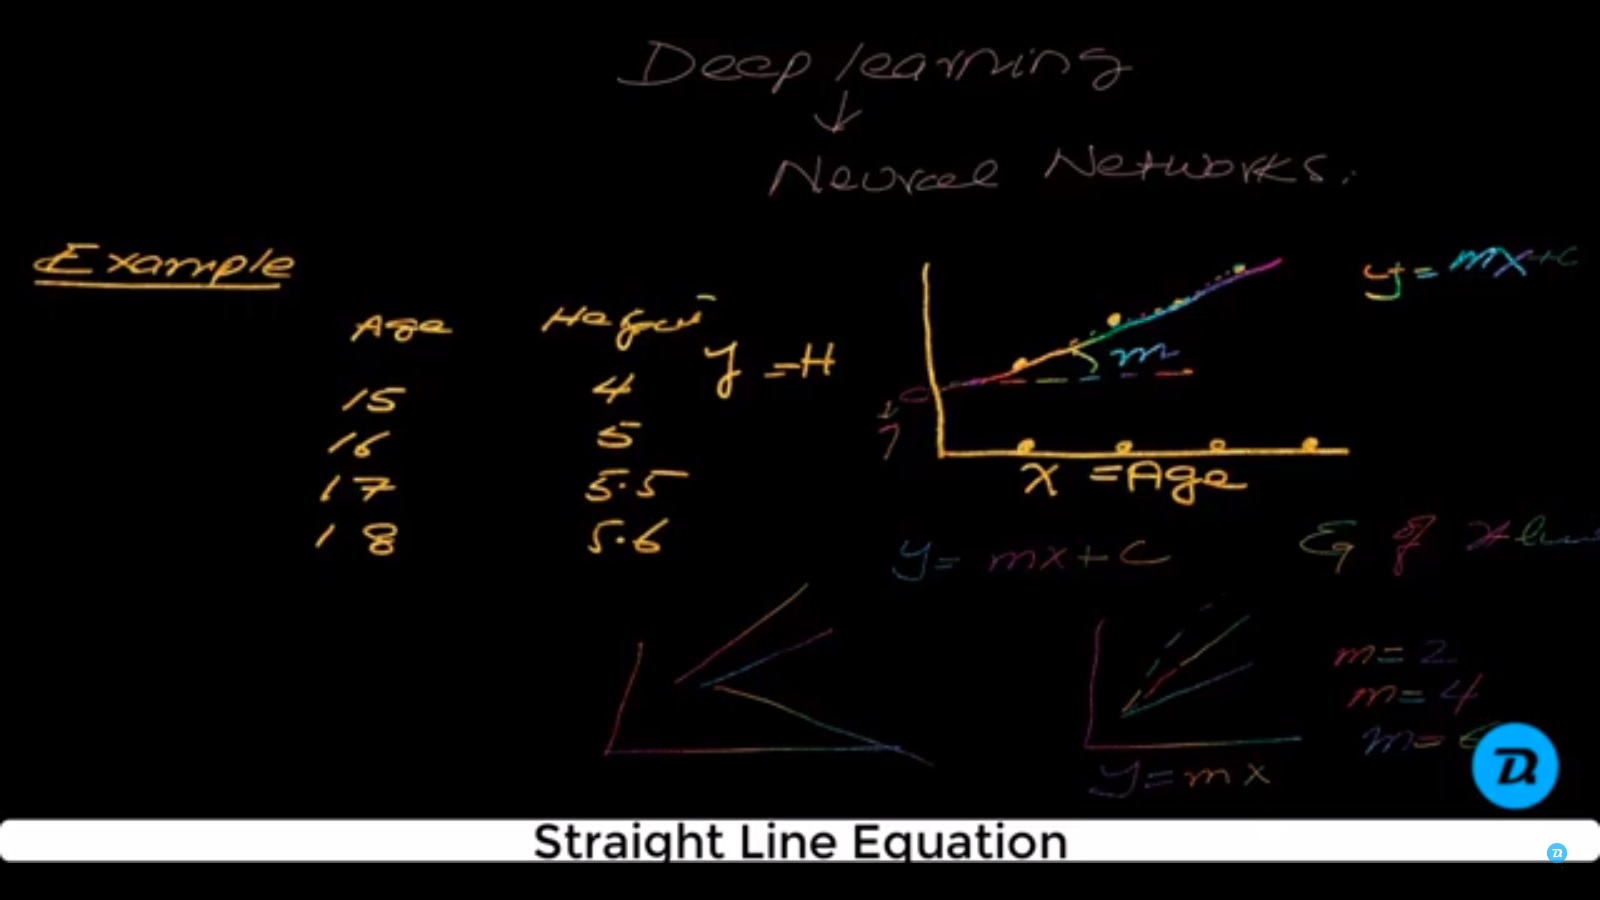 Deep learning
↓
Neural Networks.
Example
Age
15
16
17
18
4
5
5.5
5.6
y = H
y = mx + c
m
x = Age
y = mx + c
m = 2
m = 4
m =
y = mx
Straight Line Equation